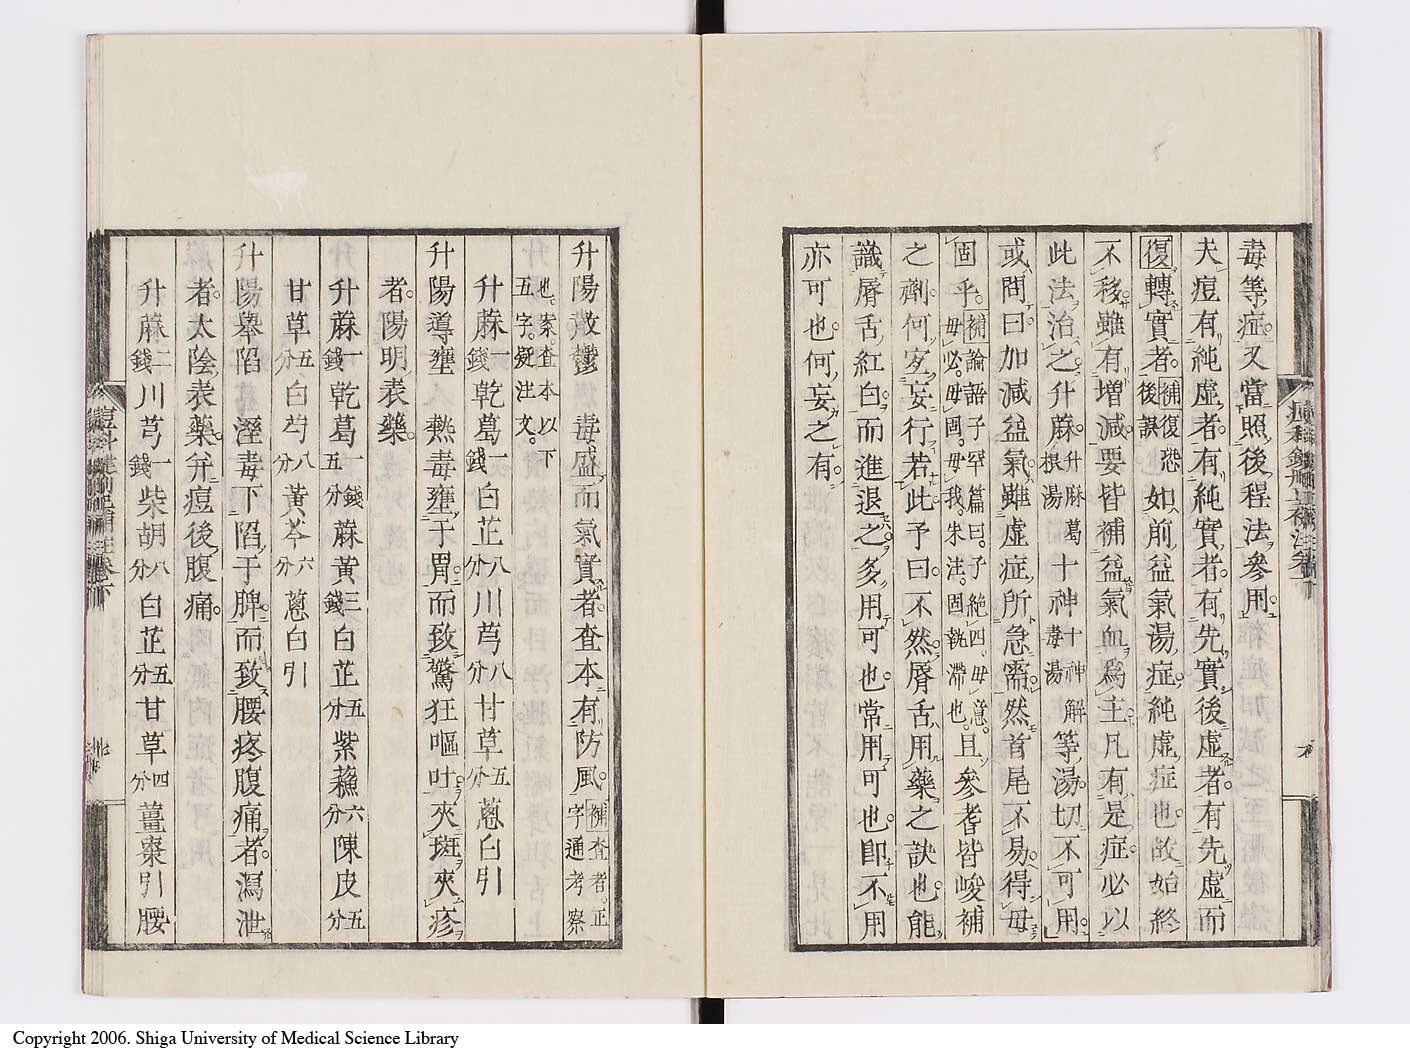 毒等症又當照後稈法參用
夫痘有純虛者有純實者有先實後虛者有先虛而
復轉實者補復恐後誤如前益氣湯症純虛症也故始終
不移雖有增減要皆補益氣血爲主凡有是症必以
此法治之升麻升麻葛根湯十神十神解毒湯等湯切不可用
或問曰加減益氣雖虛症所急需然首尾不易得毋
固乎補論語子罕篇曰子絶四毋意毋必毋固毋我朱注固執滯也且參耆皆峻補
之劑何宐妄行若此予曰不然脣舌用藥之訣也能
識脣舌紅白而進退之多用可也常用可也卽不用
亦可也何妄之有
升陽散鬱 毒盛而氣實者查本有防風補査者正字通考察
也案查本以下五字疑注文
升蔴一錢乾葛一錢白芷八分川芎八分甘草五分蔥白引
升陽導壅 熱毒壅于胃而致驚狂嘔吐夾斑夾疹
者陽明表藥
升蔴一錢乾葛一錢五分蔴黃三錢白芷五分紫蘓六分陳皮五分
甘草五分白芍八分黃芩六分蔥白引
升陽舉陷 溼毒下陷于脾而致腰疼腹痛者瀉泄
者太陰表藥弁痘後腹痛
升蔴二錢川芎一錢柴胡八分白芷五分甘草四分薑棗引腰
Copyright 2006. Shiga University of Medical Science Library